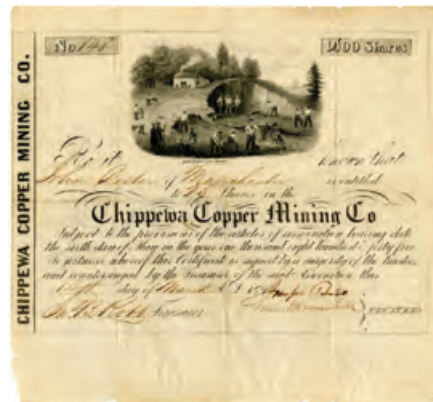 CHIPPEWA COPPER MINING CO.
No. 148
2400 Shares
Be it known that
John of Manchester is entitled
to Shares in the
Chippewa Copper Mining Co
Subject to the provisions of the articles of association bearing date
the sixth day of May in the year one thousand eight hundred & forty five
In testimony whereof this Certificate is signed by a majority of the trustees
and countersigned by the Treasurer of the said Association this
day of March A.D. 18
Treasurer
TRUSTEES